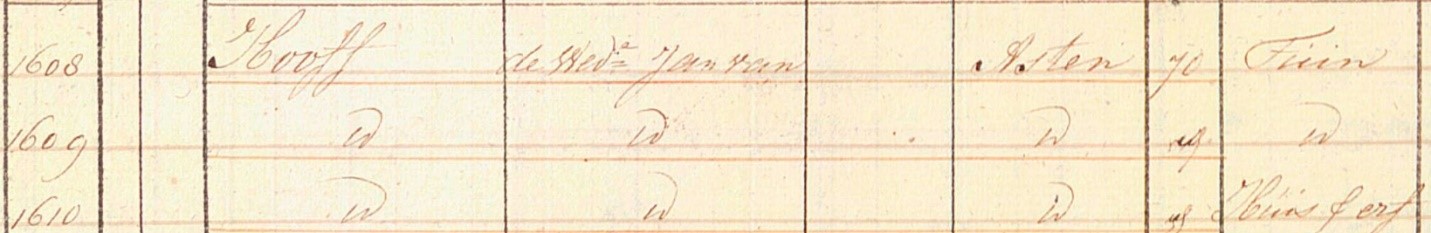 1608 Hooff de Wedᵉ Jan van Asten 70 Tuin
1609 id id id id
1610 id id id Huis & erf